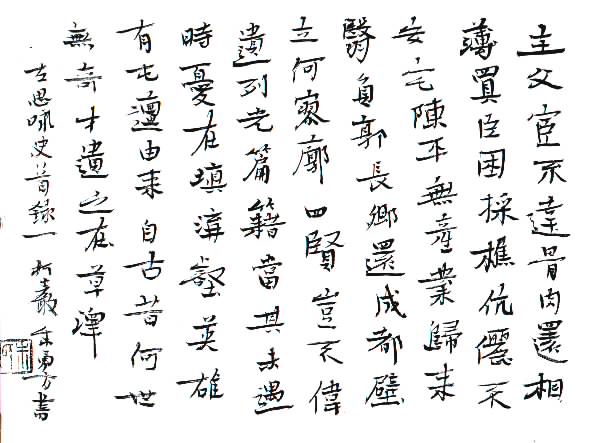 主父宦不達骨肉還相
薄買臣困採樵伉儷不
安宅陳平無產業歸来
翳負郭長卿還成都壁
立何寥廓四賢豈不偉
遺列光篇籍當其未遇
時憂在填溝壑英雄
有屯邅由来自古昔何世
無奇才遺之在草澤
左思咏史首錄一 勇方書